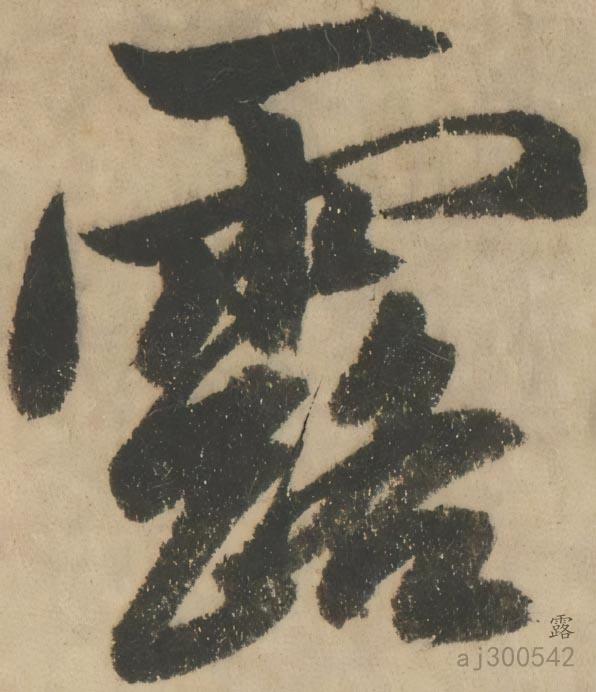 露
露
aj300542